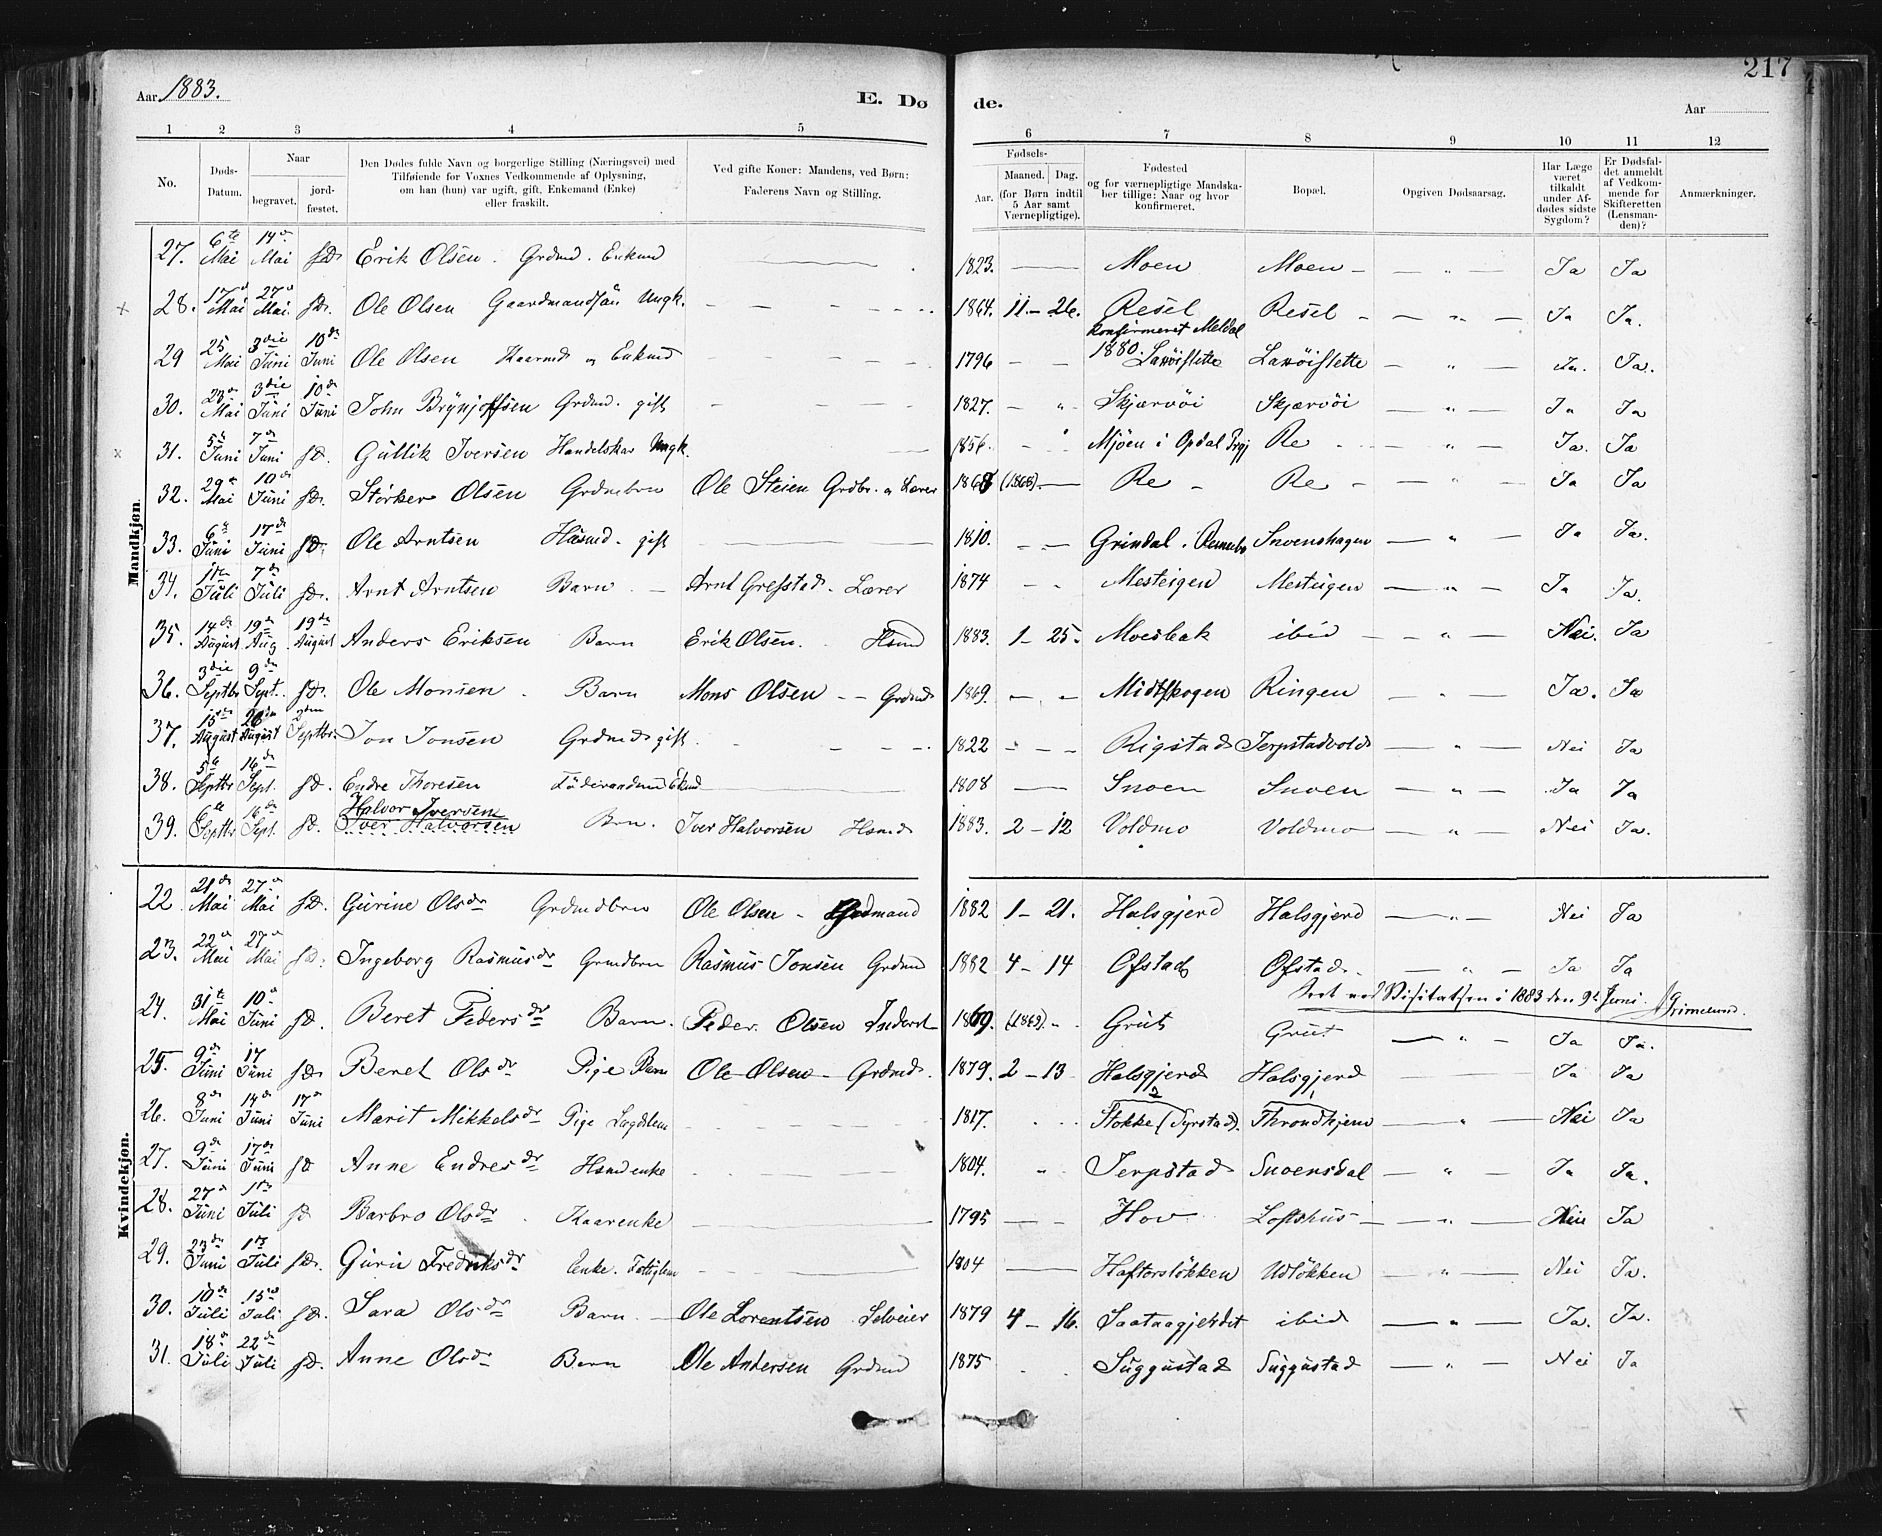 217
Aar 1883.
E. Dø de.
Aar
1 2 3 4 5 6 7 8 9 10 11 12
No.
Døds-Datum.
Naar
begravet.
jord-fæstet.
Den Dødes fulde Navn og borgerlige Stilling (Næringsvei) med
Tilføiende for Voxnes Vedkommende af Oplysning,
om han (hun) var ugift, gift, Enkemand (Enke)
eller fraskilt.
Ved gifte Koner: Mandens, ved Børn:
Faderens Navn og Stilling.
Fødsels-
Aar.
Maaned. Dag.
(for Børn indtil
5 Aar samt
Værnepligtige).
Fødested
og for værnepligtige Mandska-
ber tillige: Naar og hvor
konfirmeret.
Bopæl.
Opgiven Dødsaarsag.
Har Læge
været
tilkaldt
under Af-
dødes sidste
Sygdom?
Er Dødsfal-
det anmeldt
af Vedkom-
mende for
Skifteretten
(Lensman-
den)?
Anmærkninger.
Mandkjøn.
27. 6te Mai 14de Mai sD. Erik Olsen. Grdmd. Enkmd 1823. Moen Moen - " - Ja Ja
28. 17d Mai 27d Mai. sD. Ole Olsen Gaardmandsøn Ungk. 1864. 11 - 26. Resel konfirmeret Meldal 1880. Resel - " - Ja Ja.
29 25 Mai 3die Juni 10de Juni Ole Olsen Kaarmd og Enkmd 1796 - - Laxøislette Laxøislette - " - Ja. Ja.
30. 23de Mai 3die Juni 10de Juni John Brynjolfsen Grdmd. gift 1827. - " Skjærvøi Skjærvøi - " - Ja Ja
31. 5te Juni 7de Juni sD. Gullik Iversen Handelskar Ungk. 1856. Mjøen i Opdal Prgj Re - " - Ja. Ja
32. 29de Mai 10de Juni sD. Størker Olsen Grdmbrn Ole Steien Grdbr. og Lærer 1868 (1868). Re - Re - " - Ja Ja
33. 6te Juni 17de Juni sD. Ole Arntsen Husmd. gift 1810. Grindal i Rennebo Snoenshagen - " - Ja Ja.
34. 1ste Juli 7de Juli sD. Arnt Arntsen Barn - Arnt Grefstad. Lærer 1874 - - Mesteigen Mesteigen - " - Ja Ja.
35. 14de August 19de Aug. 19de August Anders Eriksen Barn Erik Olsen. Hsmd 1883. 1 - 25. Moesbak ibid - " - Nei. Ja
36. 3die Septbr 9de Sept. sD. Ole Monsen - Barn Mons Olsen - Grdmd 1869. - - Midtskogen Ringen - " - Ja. Ja
37. 15de August 26de August 2den Septbr. Jon Jonsen Grdmd gift. 1822 - - Rigstad Jerpstadvold - " - Nei Ja
38. 5te Septbr 16de Sept. sD. Endre Thoresen Føderaadmd Ekmd 1808 Snoen Snoen - " - Ja Ja
39. 6te Septbr 16de Sept. sD. Halvor Iversen
Iver Halvorsen Brn. Iver Halvorsen Hsmd 1883. 2 - 12 Voldmo Voldmo - " - Nei Ja.
Kvindekjøn.
22 21de Mai 27de Mai sD. Gurine Olsdr Grdmdbrn Ole Olsen - Grdmand 1882 1 - 21. Halsgjerd Halsgjerd - " - Nei Ja
23. 22de Mai 27de Mai sD. Ingeborg Rasmusdr Grmdbrn Rasmus Jonsen Grdmd 1882 4 - 14 Ofstad Ofstad. - " - Ja Ja
Seet ved Visitatsen i 1883 den 9de Juni. Grimelund.
24. 31te Mai 10de Juni sD. Beret Pedersdr Barn. Peder Olsen Inderst 1869. (1869). Grut Grut - " - Ja Ja.
25. 9de Juni 17 Juni sD. Beret Olsdr Pige Barn Ole Olsen - Grdmd. 1879. 2 - 13 Halsgjerd Halsgjerd Ja Ja
26. 8de Juni 14de Juni 17de Juni Marit Mikkelsdr Pige Lægdslem 1817. Stokke (Syrstad). Throndhjem - " - Nei Ja
27. 9de Juni 17de Juni sD Anne Endresdr Hsmdenke 1804. " Jerpstad Snoensdal - " - Ja Ja.
28. 27de Juni 1ste Juli sD Barbro Olsdr. Kaarenke 1795 Hov Loftshus - " - Nei Ja
29. 23de Juni 1ste Juli sD. Guru Fredriksdr Enke. Fattiglem 1804 Haftorsløkken Udløkken - " - Nei Ja.
30. 10de Juli 15de Juli sD. Sara Olsdr Barn. - Ole Lorentsen Selveier 1879 4 - 16. Saataagjerdet ibid - " - Ja. Ja.
31. 18de Juli 22de Juli sD. Anne Olsdr Barn Ole Andersen Grdmd 1875 Suggustad Suggustad - " - Nei Ja